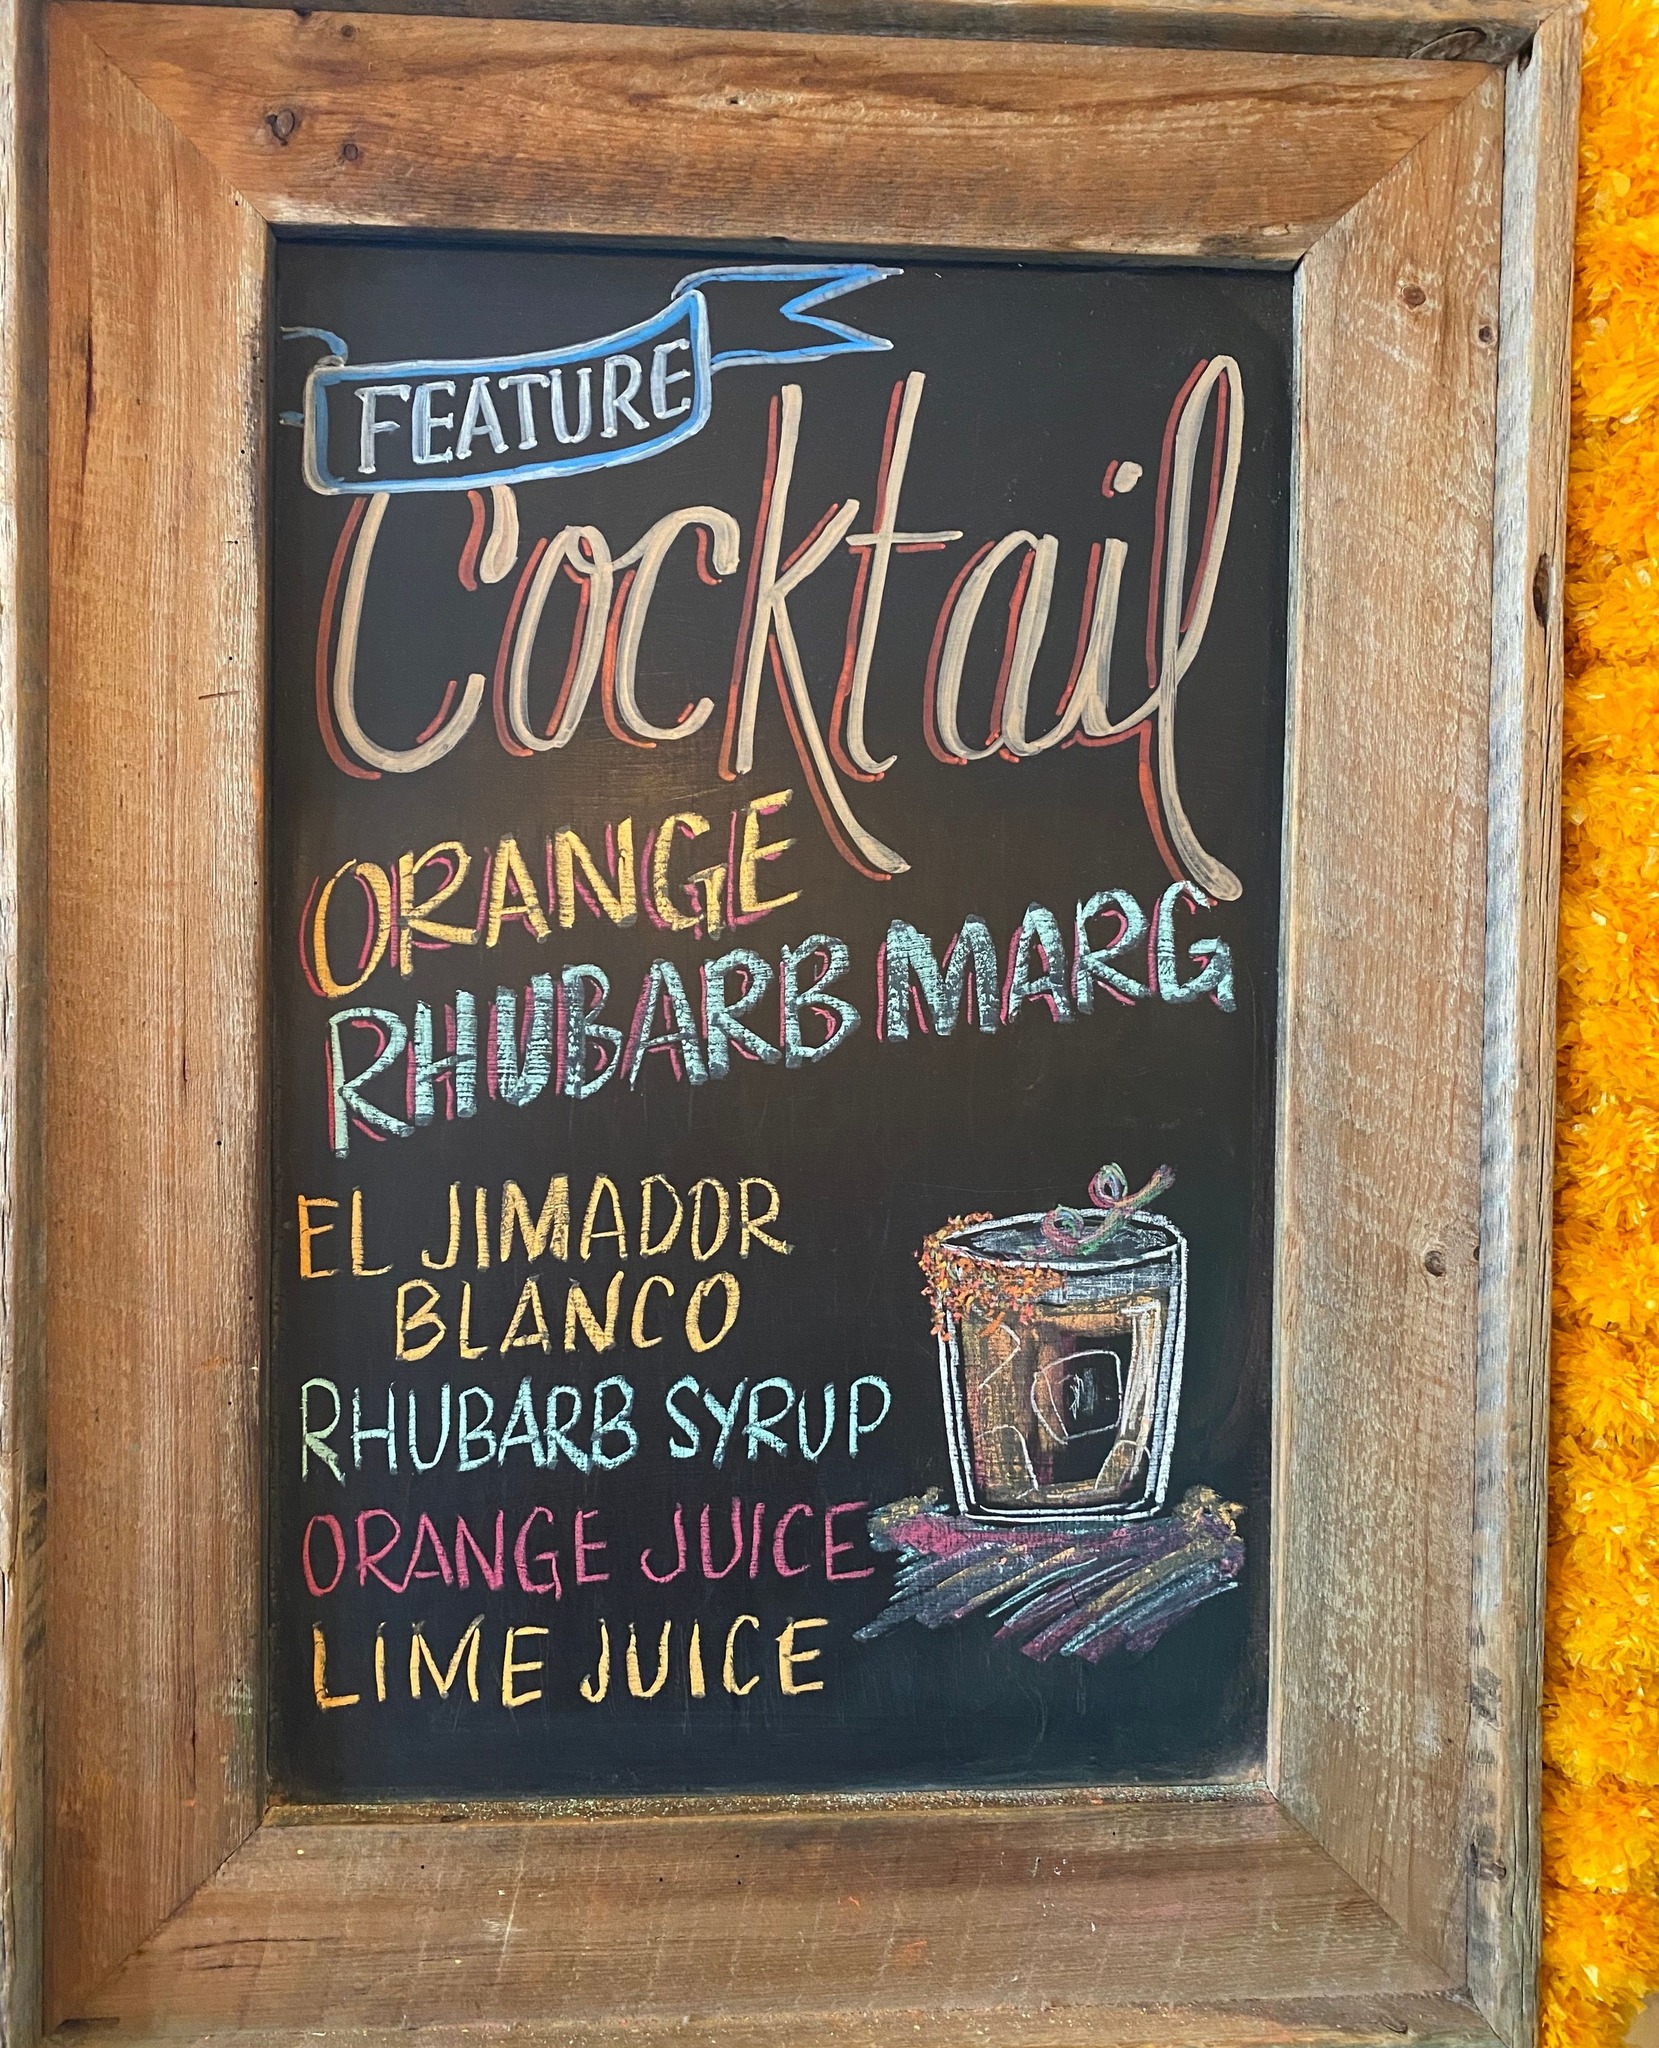 FEATURE
Cocktail
ORANGE
RHUBARB MARG
EL JIMADOR
BLANCO
RHUBARB SYRUP
ORANGE JUICE
LIME JUICE